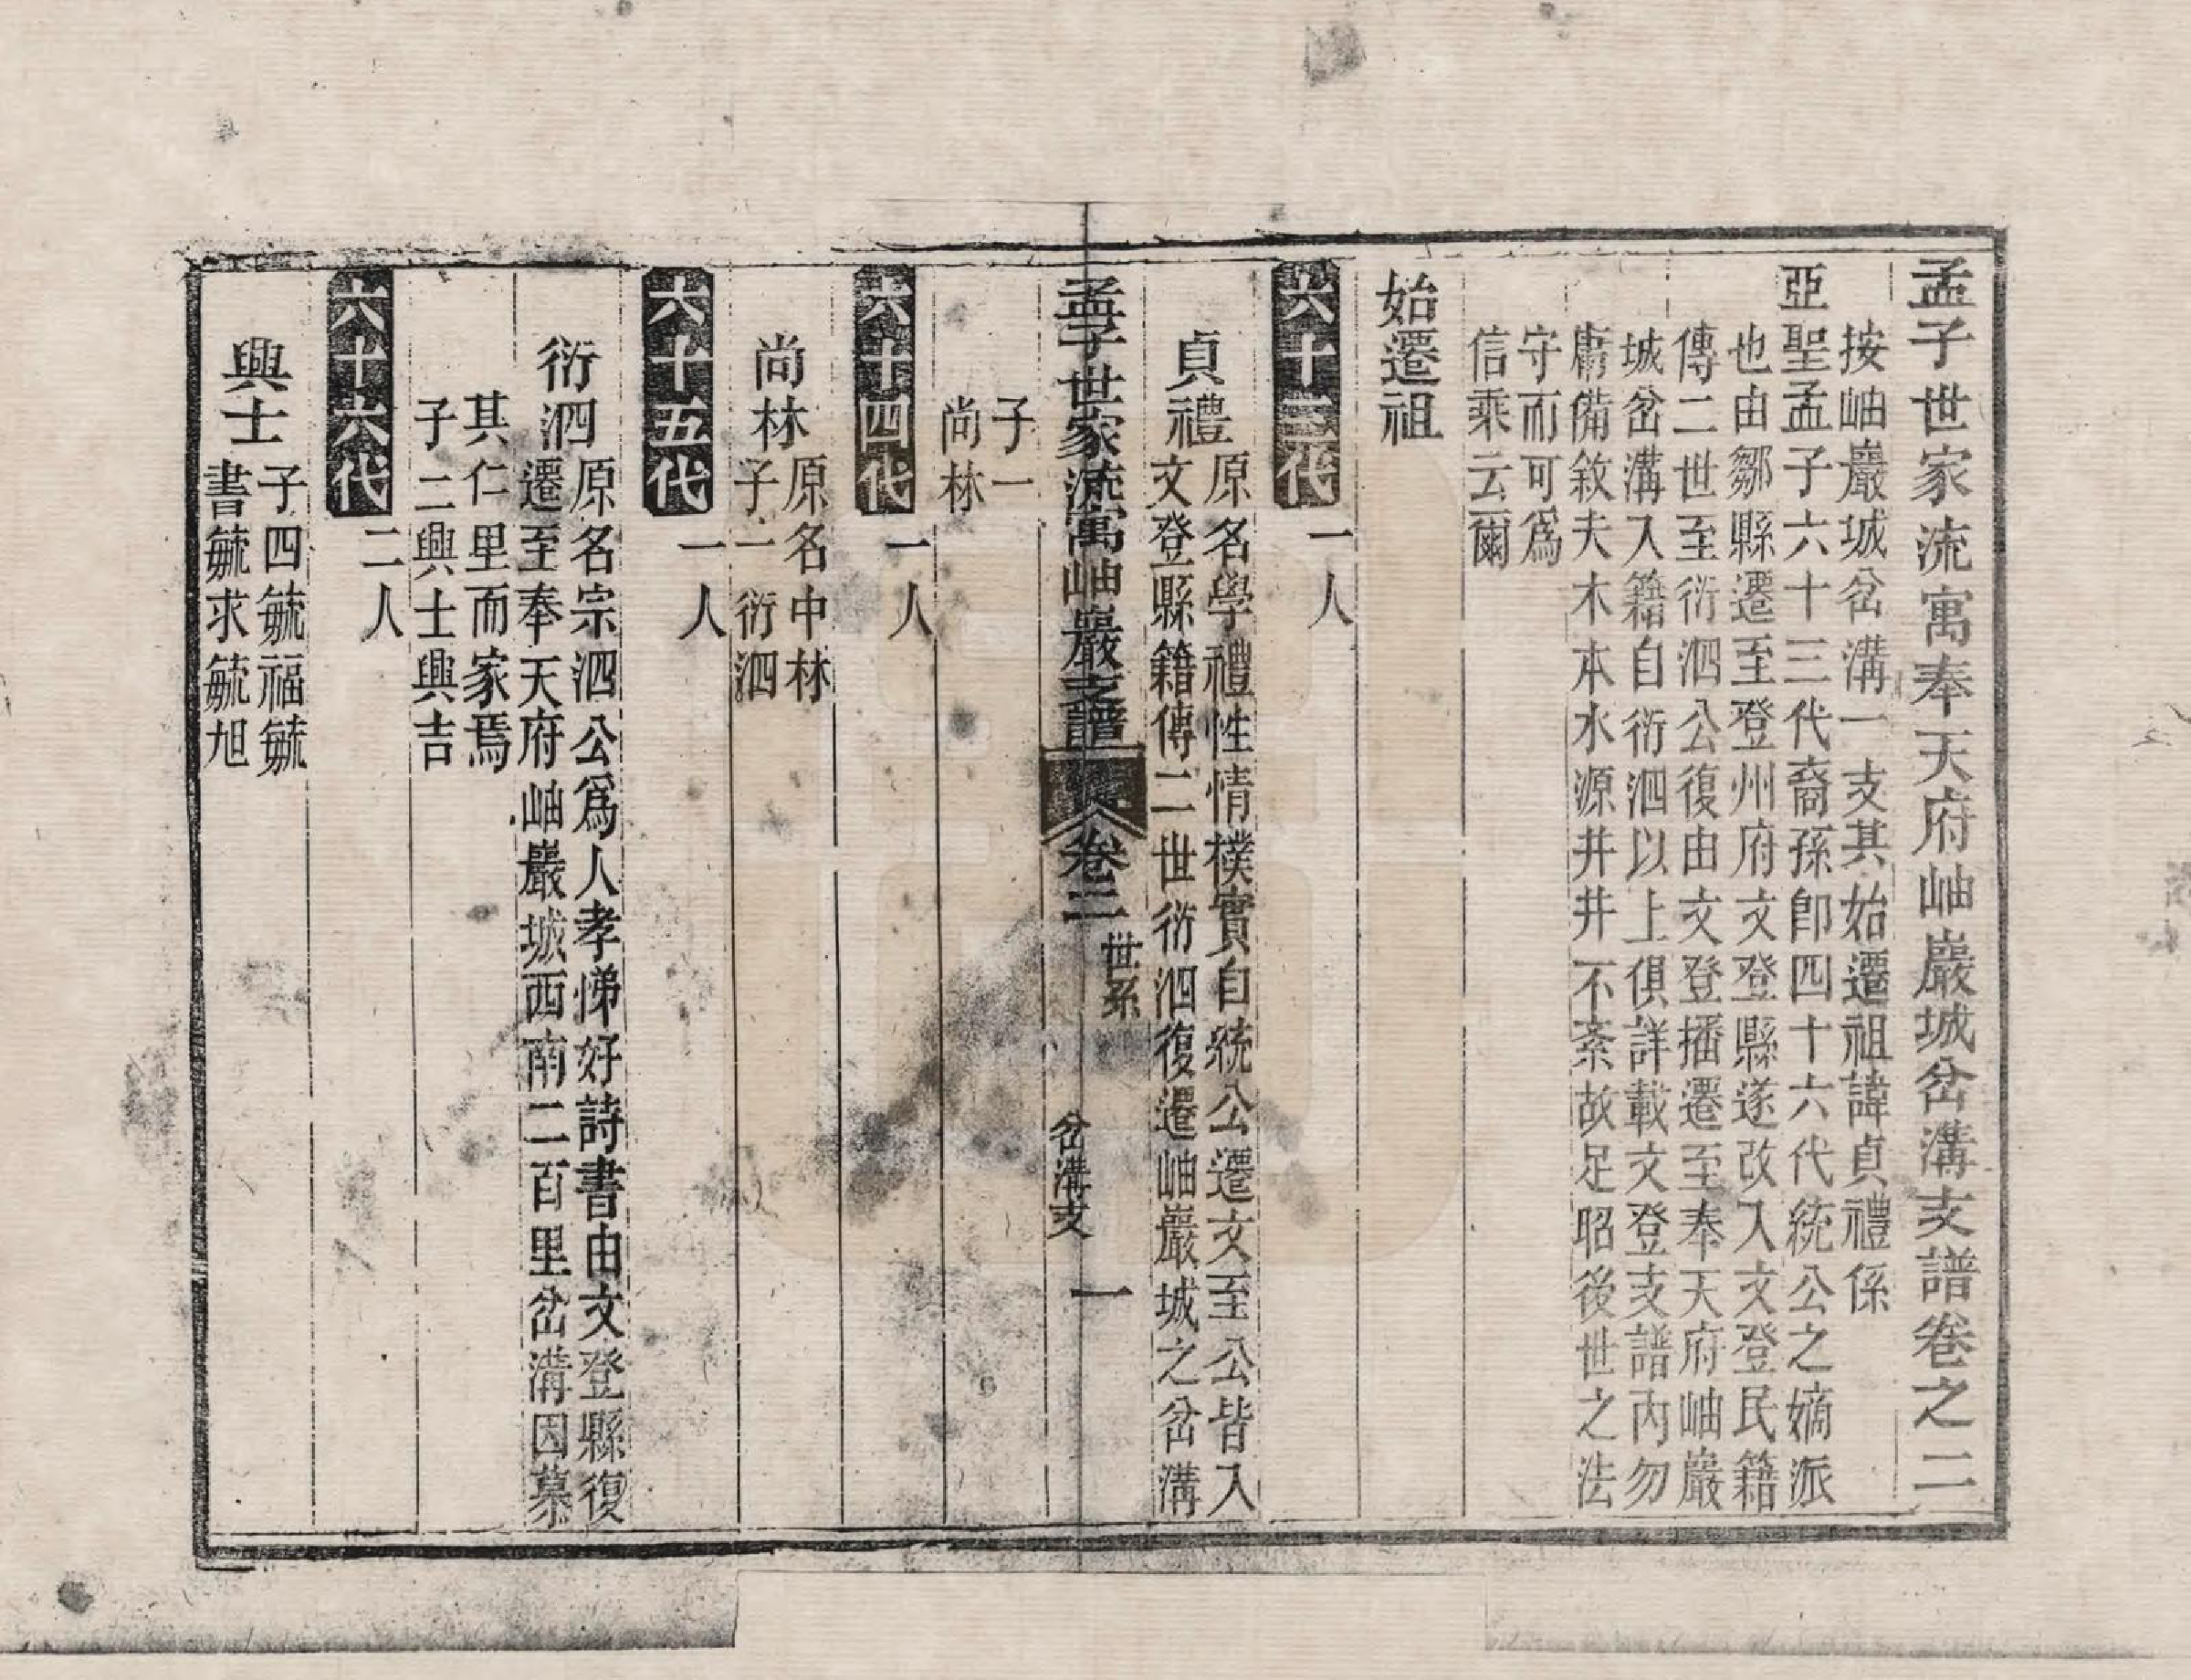 孟子世家流寓奉天府岫巖城岔溝支譜卷之二
按岫巖城岔溝一支其始遷祖諱貞禮係
亞聖孟子六十三代裔孫卽四十六代統公之嫡派
也由鄒縣遷至登州府文登縣遂改入文登民籍
傳二世至衍泗公復由文登播遷至奉天府岫巖
城岔溝入籍自衍泗以上俱詳載文登支譜內勿
庸備敘夫木本水源井井不紊故足昭後世之法
守而可爲
信乘云爾
始遷祖
六十三代一人
貞禮
原名學禮性情樸實自統公遷文至公皆入
文登縣籍傳二世衍泗復遷岫巖城之岔溝
孟子世家流寓岫巖支譜
卷二
世系
岔溝支
一
子一
尚林
六十四代一人
尚林
原名中林
子一衍泗
六十五代一人
衍泗
原名宗泗公爲人孝悌好詩書由文登縣復
遷至奉天府岫巖城西南二百里岔溝因慕
其仁里而家焉
子二興士興吉
六十六代二人
興士
子四毓福毓
書毓求毓旭